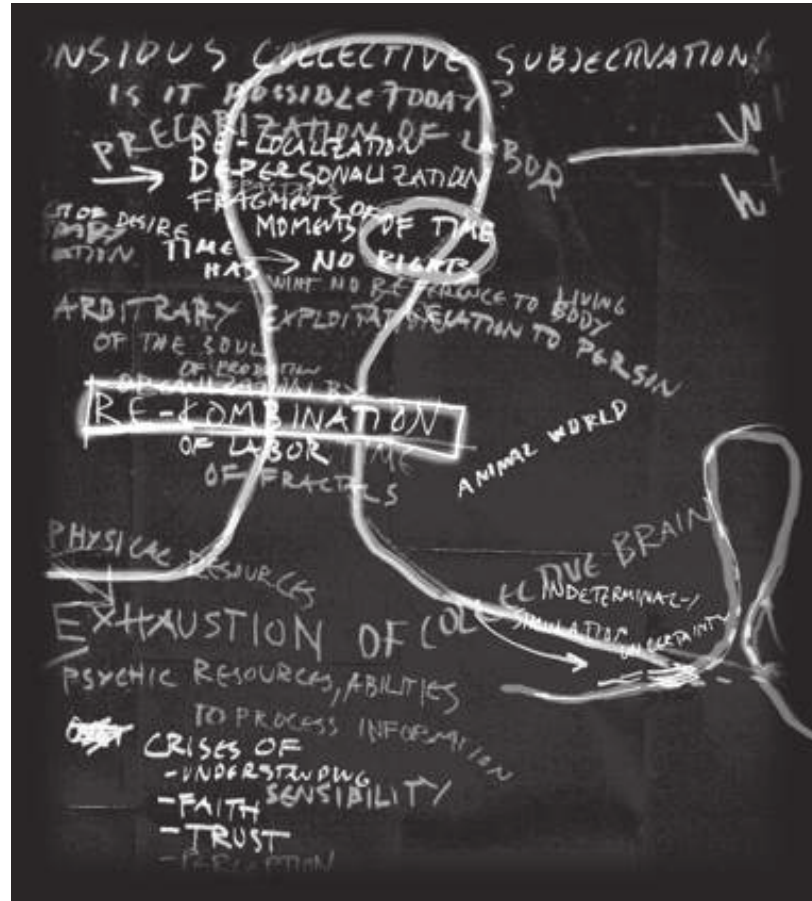 NSIOUS COLLECTIVE SUBJECTIVATION!
IS IT POSSIBLE TODAY?
PRECARIZATION OF LABOR
DE-LOCALIZATION
DE-PERSONALIZATION
FRAGMENTS OF
MOMENTS OF TIME
OF DESIRE
TIME HAS → NO RIGHTS
NO REFERENCE TO LIVING BODY
ARBITRARY EXPLOITATION
RELATION TO PERSON
OF THE SOUL
OF PRODUCTION
ORGANIZATION BY
RE-COMBINATION
OF LABOR TIME
OF FRACTALS
ANIMAL WORLD
PHYSICAL RESOURCES
EXHAUSTION OF COLLECTIVE BRAIN
INDETERMINAL-/
SIMULATION UNCERTAINTY
PSYCHIC RESOURCES, ABILITIES
TO PROCESS INFORMATION
CRISES OF
-UNDERSTANDING
SENSIBILITY
-FAITH
-TRUST
-PERCEPTION